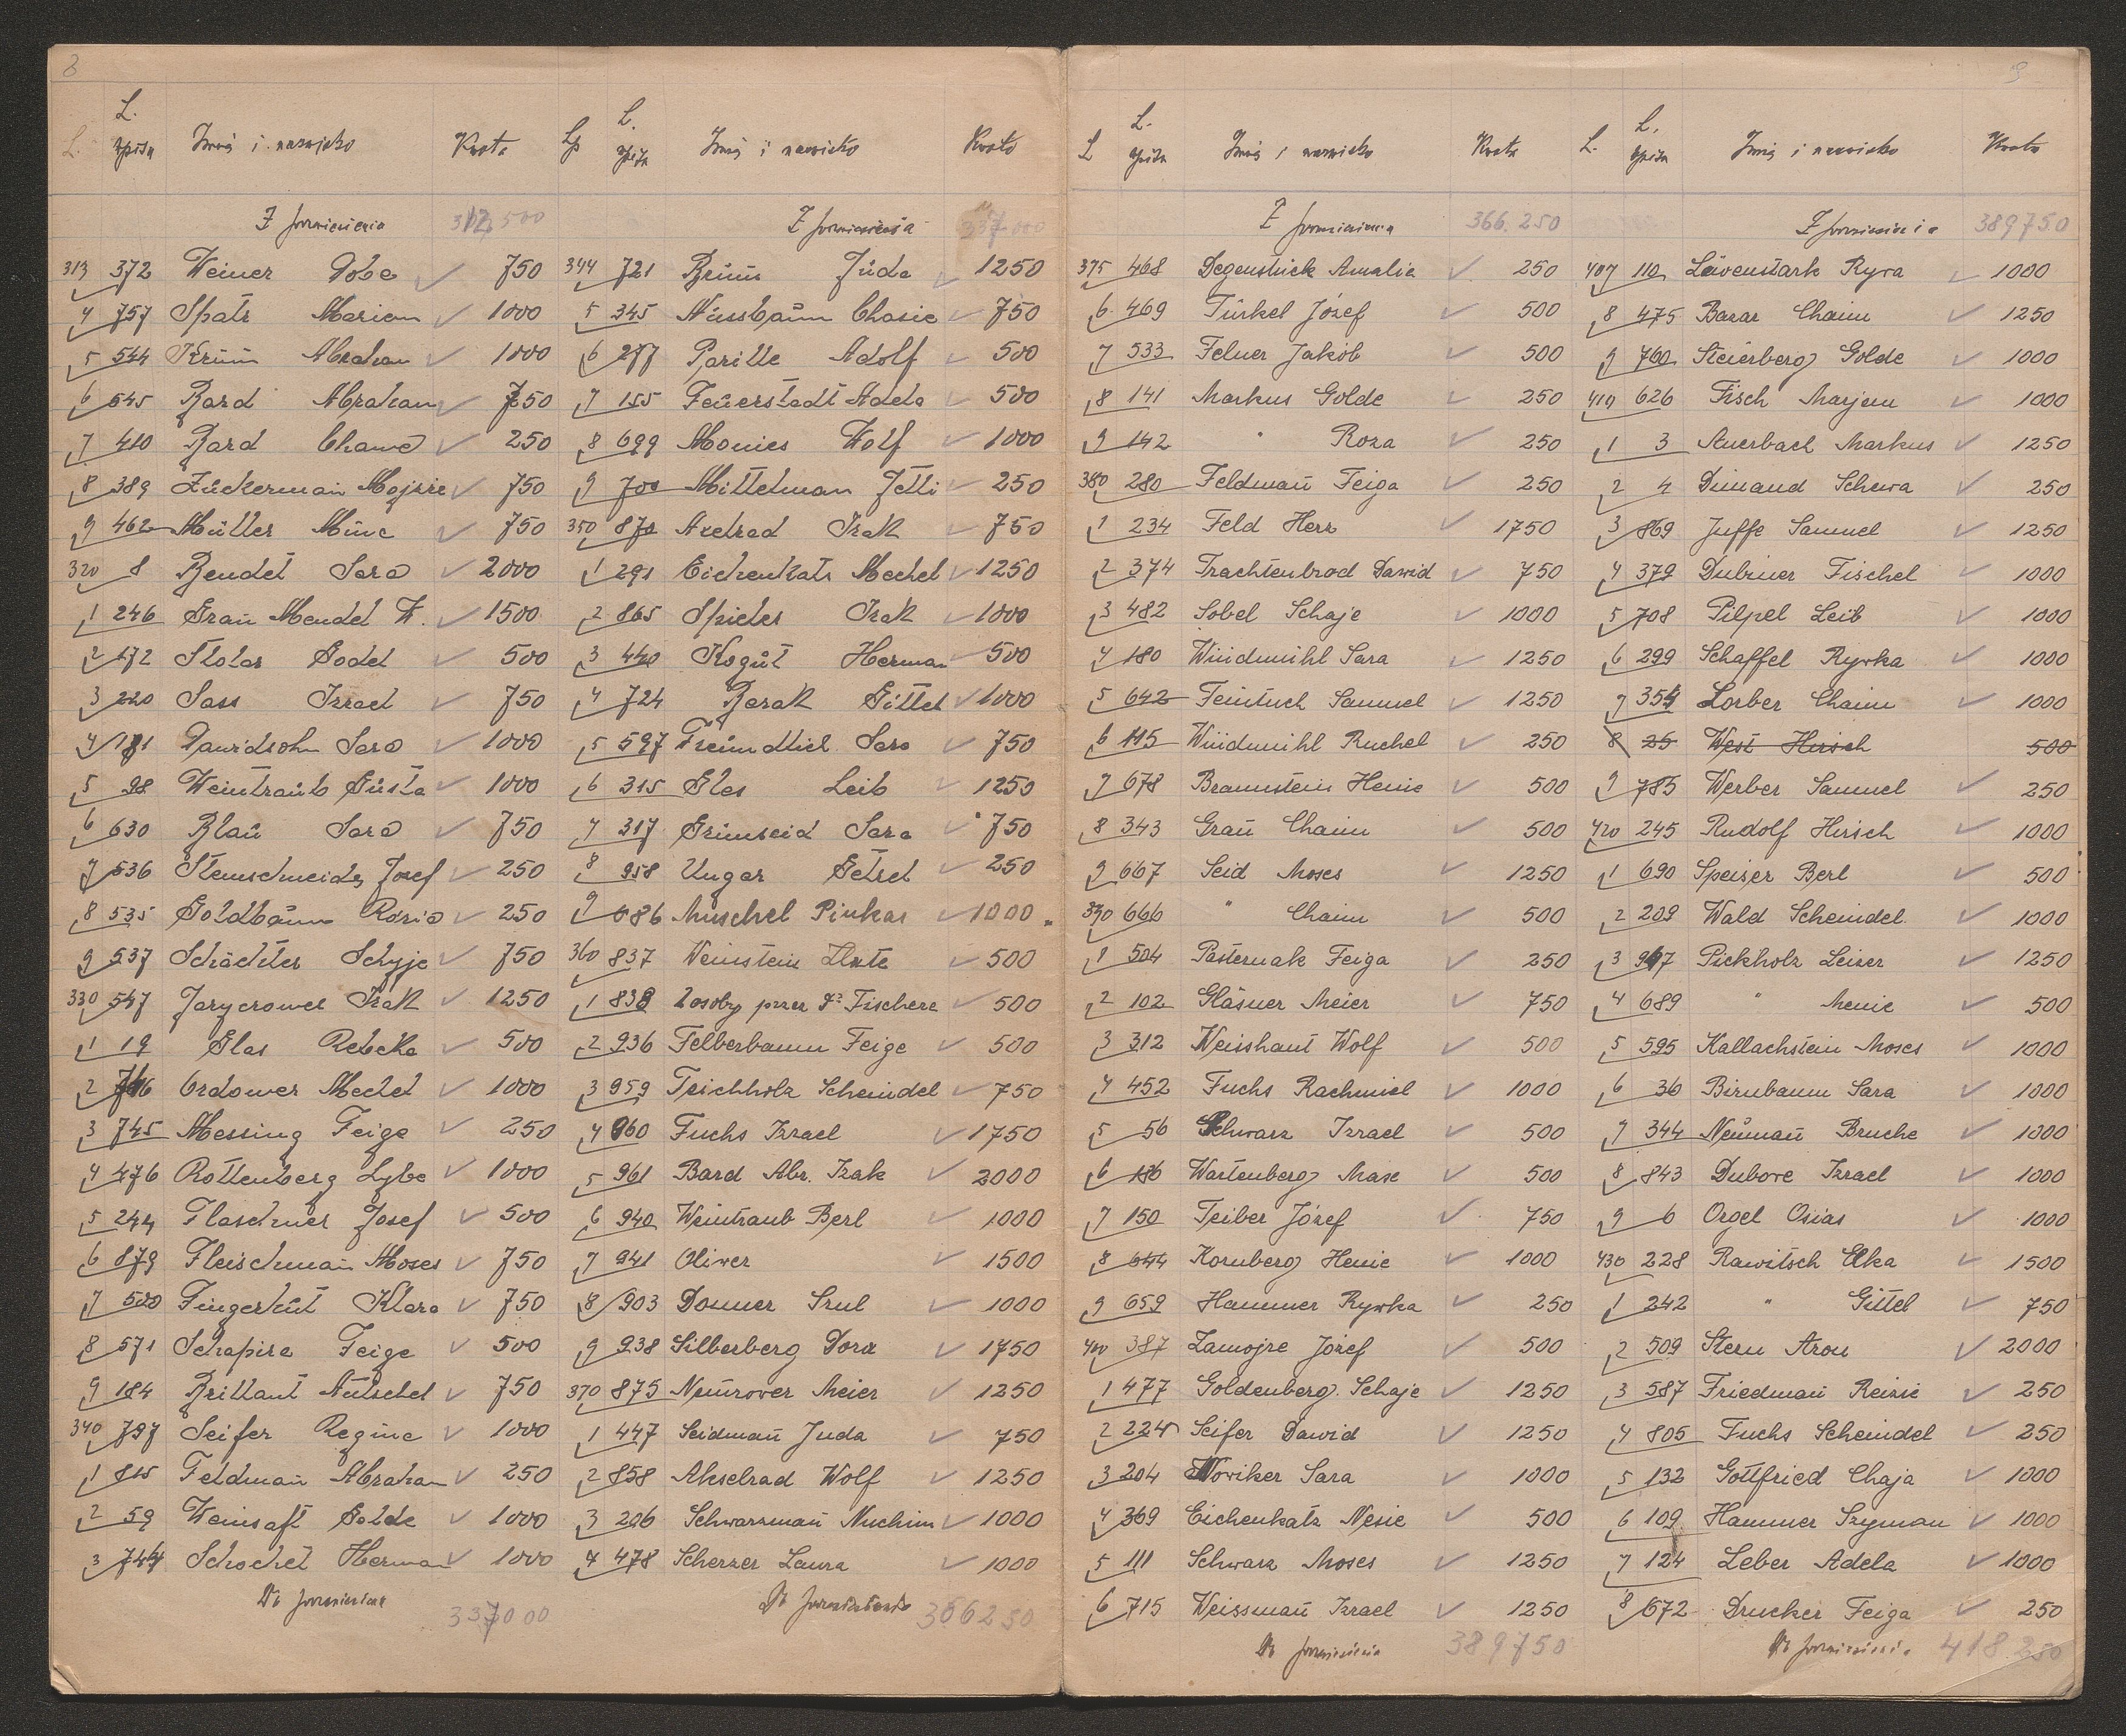 L. L. spisu Imię i nazwisko Kwota
Z przeniesienia 312,500
313 372 Weiner Dobe 750
4 757 Spatz Mariem 1000
5 544 Krum Abraham 1000
6 545 Bard Abraham 750
7 410 Bard Chawe 250
8 389 Zückerman Mojsze 750
9 462 Müller Mine 750
320 8 Bendet Sara 2000
1 246 Grau Mendel W. 1500
2 172 Stolar Godel 500
3 220 Sass Izrael 750
4 181 Dawidsohn Sara 1000
5 98 Weintraub Gusta 1000
6 630 Blau Sara 750
7 536 Steinschneider Josef 250
8 535 Goldbaum Rozia 250
9 537 Schächter Schyje 750
330 547 Jaryczower Izak 1250
1 19 Glas Rebeka 500
2 Ordower Mechel 1000
3 745 Messing Feige 250
4 476 Rottenberg Lybe 1000
5 244 Flaschner Josef 500
6 879 Fleischman Moses 750
7 500 Fingerhut Klara 750
8 571 Schapira Feige 500
9 184 Brillant Nutschel 750
340 797 Seifer Regina 1000
1 815 Feldman Abraham 250
2 59 Weinsaft Golde 1000
3 744 Schochet Herman 1000
Do przeniesienia 337000
Lp L. spisu Imię i nazwisko Kwota
Z przeniesienia 337.000
344 721 Brum Juda 1250
5 345 Nussbaum Chasie 750
6 277 Parille Adolf 500
7 155 Feuerstadt Adela 500
8 699 Monies Wolf 1000
9 700 Mittelman Jetti 250
350 870 Axelrad Izak 750
1 291 Eichenkatz Mechel 1250
2 865 Spieler Izak 1000
3 440 Kogut Herman 500
4 724 Barak Gittel 1000
5 597 Freundlich Sara 750
6 315 Gles Leib 1250
7 317 Grünseid Sara 750
8 958 Ungar Getzel 250
9 686 Muschel Pinkas 1000
360 837 Weinstein Złate 500
1 838 2 osoby przez Fischera 500
2 936 Felberbaum Feige 500
3 959 Teichholz Scheindel 750
4 960 Fuchs Izrael 1750
5 961 Bard Abr. Izak 2000
6 940 Weintraub Berl 1000
7 941 Oliver 1500
8 903 Donner Srul 1000
9 938 Silberberg Dora 1750
370 875 Neurower Meier 1250
1 447 Seidmań Juda 750
2 858 Akselrad Wolf 1250
3 206 Schwarzmań Nuchim 1000
4 478 Scherzer Laura 1000
Do przeniesienia 366250
L L. spisu Imię i nazwisko Kwota
Z przeniesienia 366.250
375 468 Degenstück Amalia 250
6 469 Türkel Józef 500
7 533 Felner Jakób 500
8 141 Markus Golde 250
9 142 " Roza 250
380 280 Feldmań Feiga 250
1 234 Feld Herz 1750
2 374 Trachtenbrod Dawid 750
3 482 Sobel Schaje 1000
4 180 Windmühl Sara 1250
5 642 Feintuch Samuel 1250
6 115 Windmühl Ruchel 250
7 678 Braunstein Henie 500
8 343 Grau Chaim 500
9 667 Seid Moses 1250
390 666 " Chaim 500
1 504 Pasternak Feiga 250
2 102 Gläsner Meier 750
3 312 Weisshaut Wolf 500
4 452 Fuchs Rachmiel 1000
5 56 Schwarz Izrael 500
6 186 Wartenberg Mase 500
7 150 Teiber Józef 750
8 644 Kornberg Henie 1000
9 659 Hammer Rywka 250
400 387 Zamojre Józef 500
1 477 Goldenberg Schaje 1250
2 224 Seifer Dawid 1250
3 204 Nowiker Sara 1000
4 369 Eichenkatz Nesie 500
5 111 Schwarz Moses 1250
6 715 Weissmań Izrael 1250
Do przeniesienia 389750
L. L. spisu Imię i nazwisko Kwota
Z przeniesienia 389750
407 110 Lewenstark Ryza 1000
8 475 Bazar Chaim 1250
9 760 Steierberg Golde 1000
410 626 Fisch Marjem 1000
1 3 Auerbach Markus 1250
2 4 Dimand Schewa 250
3 869 Juffe Samuel 1250
4 379 Dubiner Fischel 1000
5 708 Pilpel Leib 1000
6 299 Schaffel Rywka 1000
7 354 Lorber Chaim 1000
8 25 West Hirsch 500
9 785 Werber Samuel 250
420 245 Rudolf Hirsch 1000
1 690 Speiser Berl 500
2 209 Wald Scheindel 1000
3 967 Pickholz Leizer 1250
4 689 " Menie 500
5 595 Kallachstein Moses 1000
6 36 Birnbaum Sara 1000
7 344 Neumań Bruche 1000
8 843 Dubove Izrael 1000
9 6 Orgel Osias 1000
430 228 Rawitsch Elka 1500
1 242 " Gittel 750
2 509 Stern Aron 2000
3 587 Friedmań Reizie 250
4 805 Fuchs Scheindel 250
5 132 Gottfried Chaja 1000
6 109 Hammer Szyman 1000
7 124 Leber Adela 1000
8 672 Drucker Feiga 250
Do przeniesienia 418250